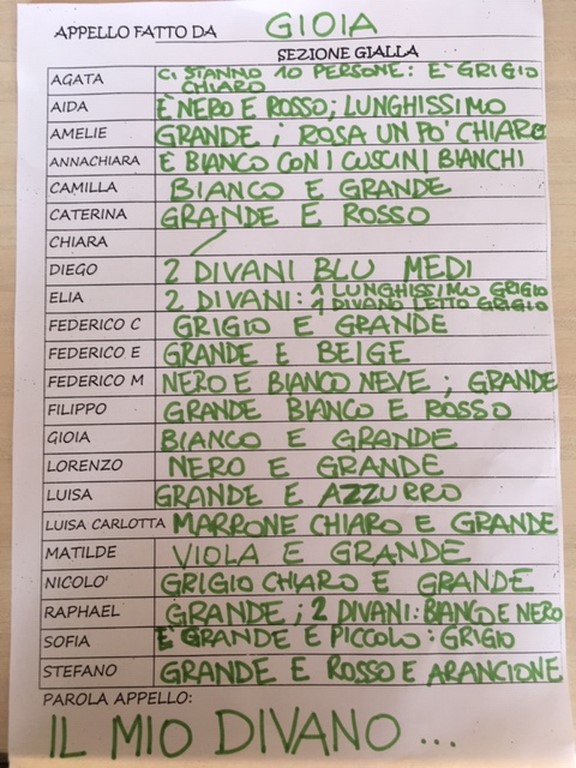 APPELLO FATTO DA GIOIA
SEZIONE GIALLA
AGATA C. STANNO 10 PERSONE: E' GRIGIO
CHIARO
AIDA È NERO E ROSSO; LUNGHISSIMO
AMELIE GRANDE ; ROSA UN PO' CHIARO
ANNACHIARA È BIANCO CON I CUSCINI BIANCHI
CAMILLA BIANCO E GRANDE
CATERINA GRANDE E ROSSO
CHIARA /
DIEGO 2 DIVANI BLU MEDI
ELIA 2 DIVANI: 1 LUNGHISSIMO GRIGIO
1 DIVANO LETTO GRIGIO
FEDERICO C GRIGIO E GRANDE
FEDERICO E GRANDE E BEIGE
FEDERICO M NERO E BIANCO NEVE ; GRANDE
FILIPPO GRANDE BIANCO E ROSSO
GIOIA BIANCO E GRANDE
LORENZO NERO E GRANDE
LUISA GRANDE E AZZURRO
LUISA CARLOTTA MARRONE CHIARO E GRANDE
MATILDE VIOLA E GRANDE
NICOLO' GRIGIO CHIARO E GRANDE
RAPHAEL GRANDE ; 2 DIVANI: BIANCO E NERO
SOFIA È GRANDE E PICCOLO: GRIGIO
STEFANO GRANDE E ROSSO E ARANCIONE
PAROLA APPELLO:
IL MIO DIVANO ...